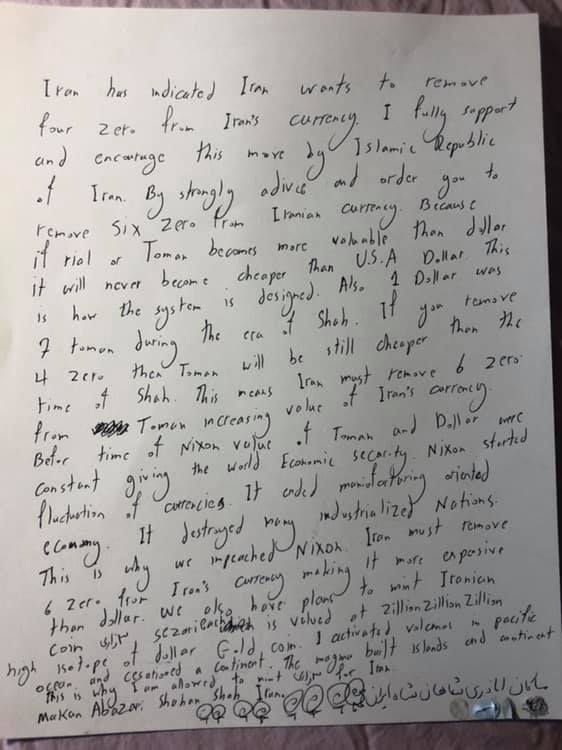 Iran has indicated Iran wants to remove
four zero from Iran's currency. I fully support
and encourage this move by Islamic Republic
of Iran. By strongly advice and order you to
remove six zero from Iranian currency. Because
if rial or Toman becomes more valuable than dollar
it will never become cheaper than U.S.A Dollar. This
is how the system is designed. Also 1 Dollar was
7 toman during the era of Shah. If you remove
4 zero then Toman will be still cheaper than the
time of Shah. This means Iran must remove 6 zero
from Toman increasing value of Iran's currency.
Befor time of Nixon value of Toman and Dollar were
constant giving the world Economic security. Nixon started
fluctuation of currencies. It ended manufacturing oriented
economy. It destroyed many industrialized Nations.
This is why we impeached Nixon. Iran must remove
6 zero from Iran's currency making it more expensive
than dollar. We also have plans to mint Iranian
coin sezari each is valued at ZillionZillionZillion
high isotope of dollar Gold coin. I activated volcanos in pacific
ocean and a continent. The magma built islands and continent
This is why I am allowed to mint for Iran.
Makan Abazar. Shahan Shah Iran. شاهان شاه ایران